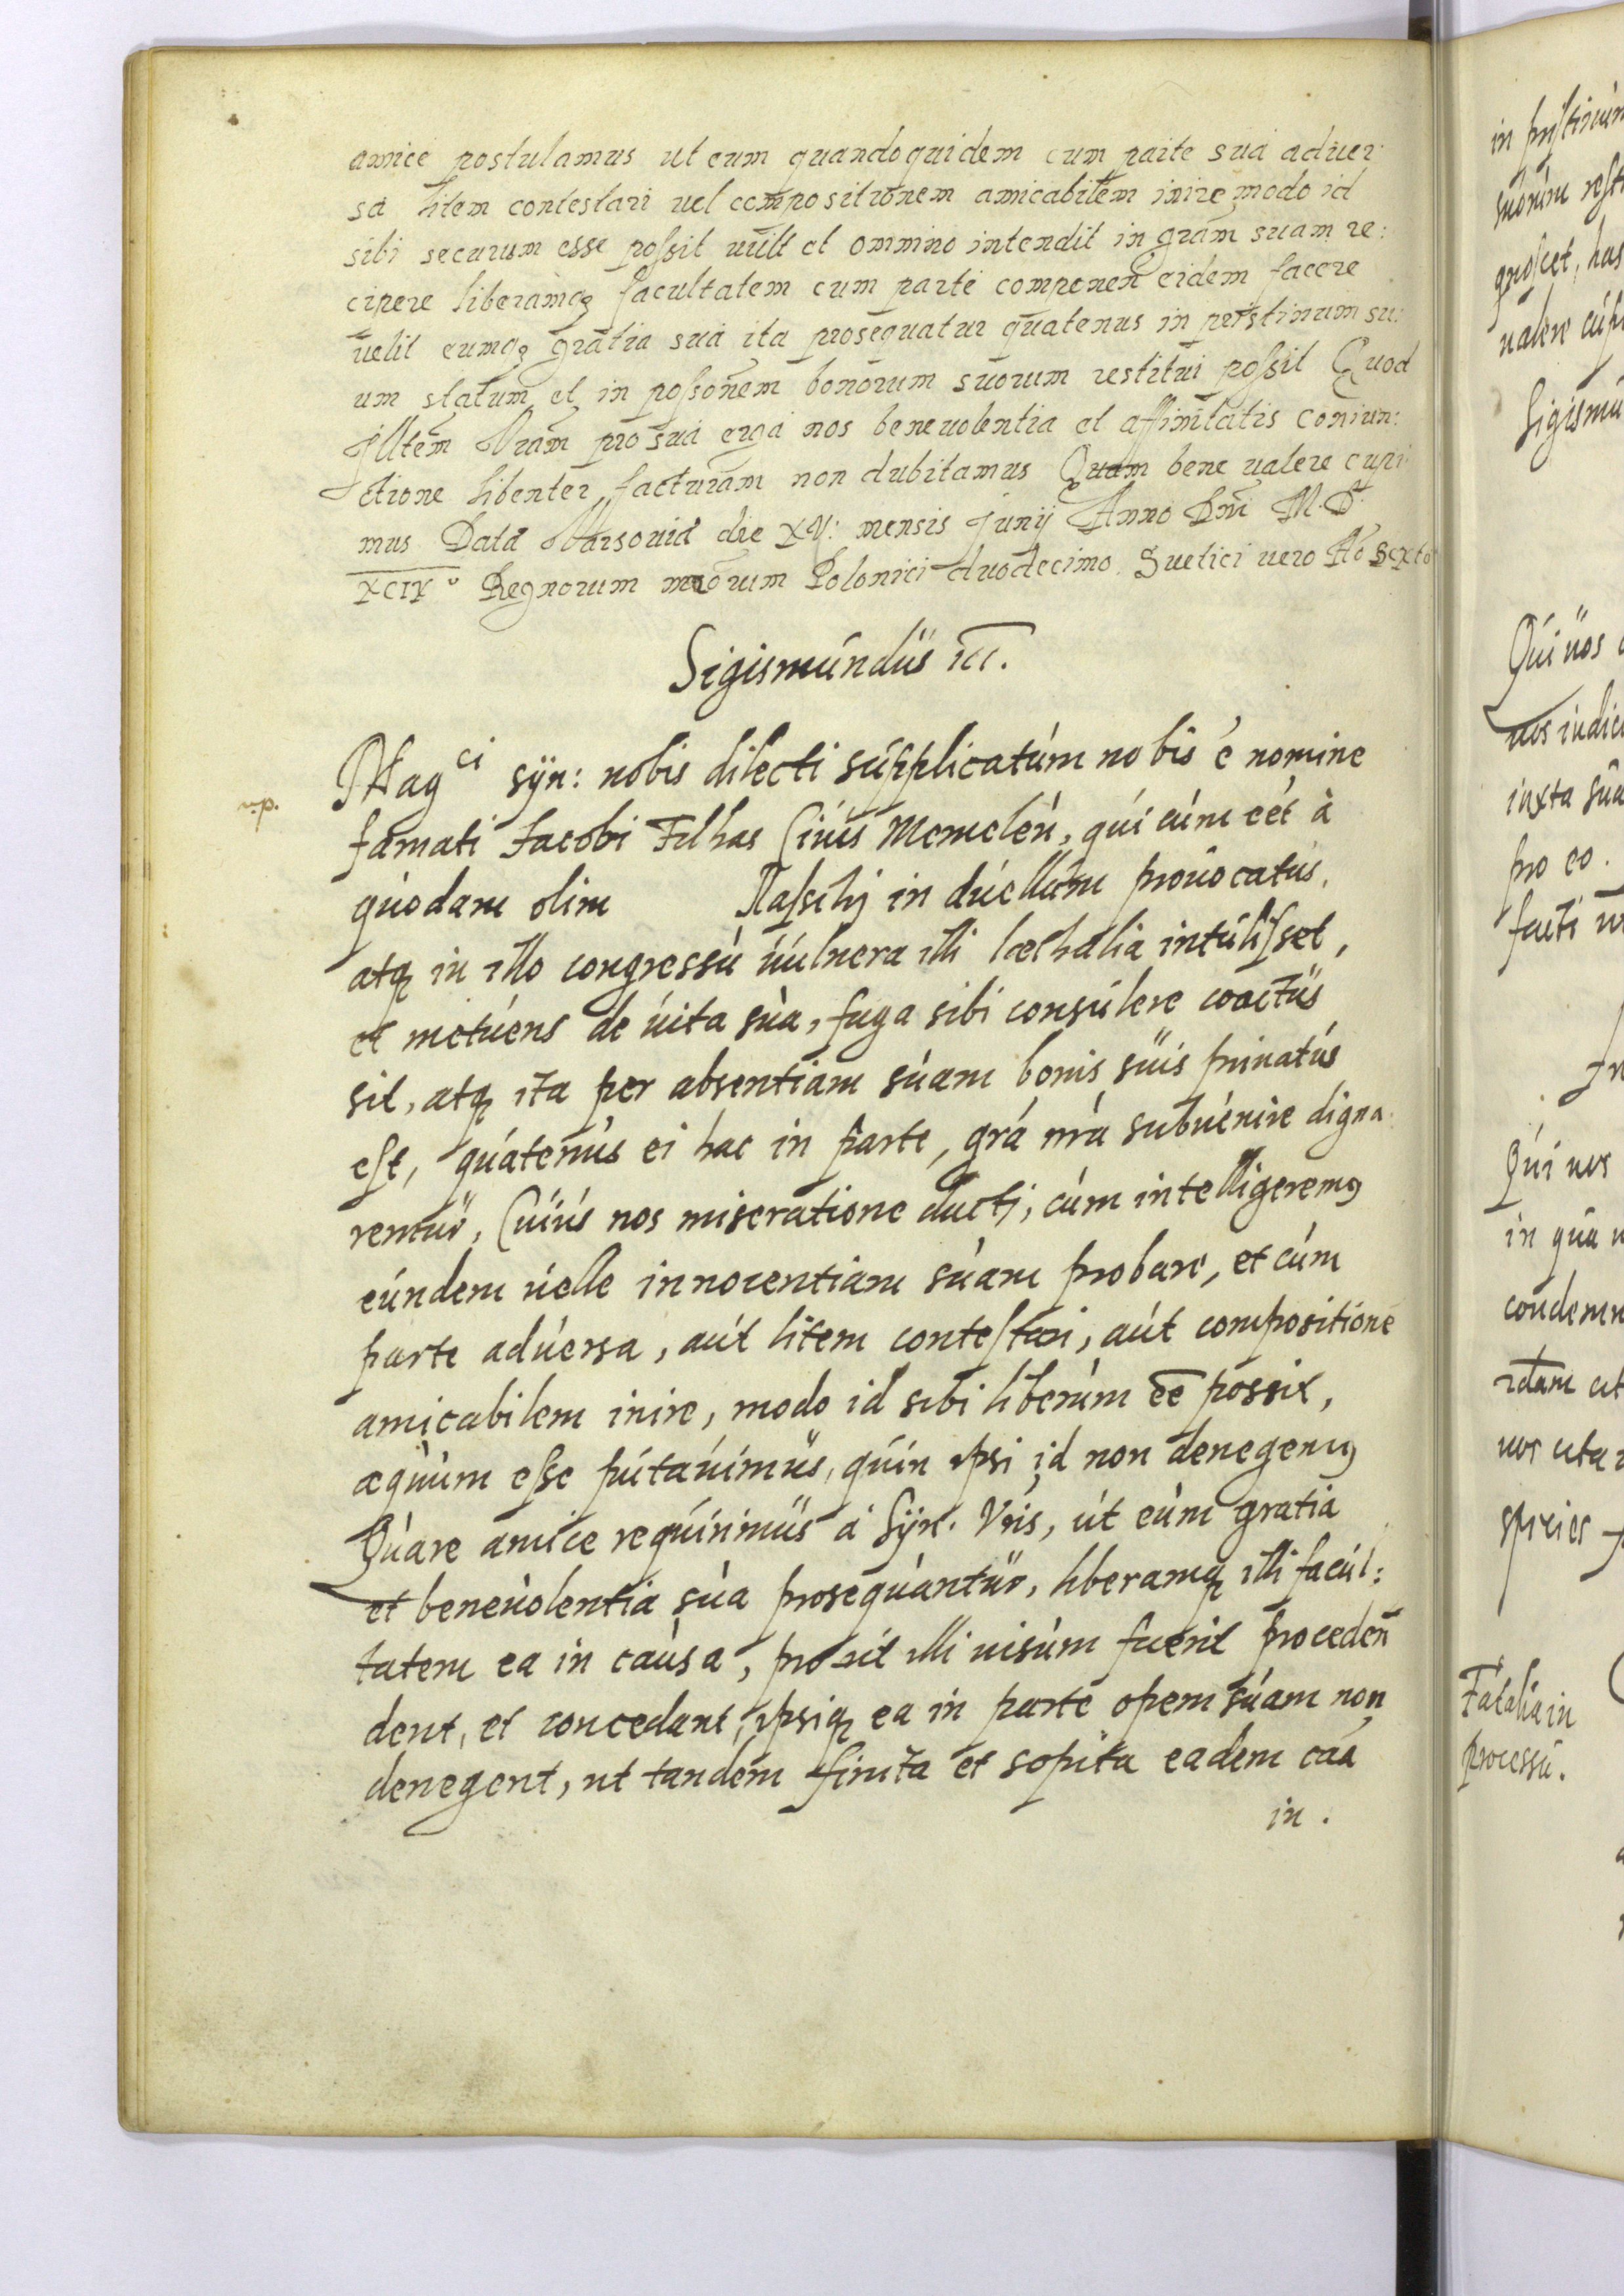 amice postulamus ut eum quandoquidem cum parte sua aduer:
sa litem contestari uel compositionem amicabilem inire modo id
sibi securum esse possit uult et omnino intendit in grām suam re:
cipere liberamq; facultatem cum parte componen̄ eidem facere
uelit eumq; gratia sua ita prosequatur quatenus in perstinum su:
um statum et in possonem bonorum suorum restitui possit Quod
Illtem Vram pro sua erga nos beneuolentia et affinitatis coniun:
ctione libenter facturam non dubitamus Quam bene ualere cupi:
mus Data Varsouiæ die XV: mensis Junij Anno Dni M.D.
XCIX° Regnorum nrorum Polonici duodecimo Suetici uero Aō sexto
Sigismundus III.
Magci syn: nobis dilecti supplicatum nobis é nomine
n.p.
famati Jacobi Filhas Ciuis Memelen̄, qui cum eét à
quodam olim Nasschj in duellum prouocatus,
atq; in illo congressu uulnera illi læthalia intulisset,
et metuens de uita sua, fuga sibi consulere coactus
sit, atq; ita per absentiam suam bonis suis priuatus
est, quatenus ei hac in parte, grá nrá subuenire digna
remur, Cuius nos miseratione ducti, cum intelligerem9
eundem uelle innocentiam suam probare, et cum
parte aduersa, aut litem contestari, aut compositionē
amicabilem inire, modo id sibi liberum eē possit,
æquum esse putauimus, quin ipsi id non denegem9
Quare amice requirimus á Syn. Vris, ut eum gratia
et beneuolentia sua prosequantur, liberamq; illi facul:
tatem ea in causa, pro ut illi uisum fuerit proceden̄
dent, et concedant, ipsiq; ea in parte opem suam non
denegent, ut tandem finita et sopita eadem caā
in.
in pristinum
suorum resti
gnoscet, has
ualere cupi
Sigismu
Qui nos
nos iudic
iuxta sua
pro eo.
facti
Qui nos
in qua
condemn
idam ut
uos uta
species
Fatalia in
processu.